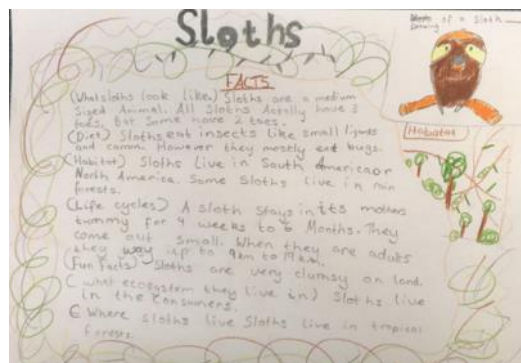 Sloths
of a sloth
drawing
FACTS
(What sloths look like) Sloths are a medium
sized Animal. All sloths Actally have 3
toes. But Some have 2 toes.
(Diet) Sloths eat insects like small
and However they mostly eat bugs.
(Habitat) Sloths Live in South America or
North America. Some Sloths live in rain
forests.
(Life cycles) A sloth stays in its mothers
tummy for 4 weeks to 6 Months. They
come out small. When they are adults
they way up to
(Fun Facts) Sloths are very clumsy on land.
(what ecosystem they live in) Sloths live
in the consumers.
Where sloths live Sloths live in tropical
forests.
Habatat